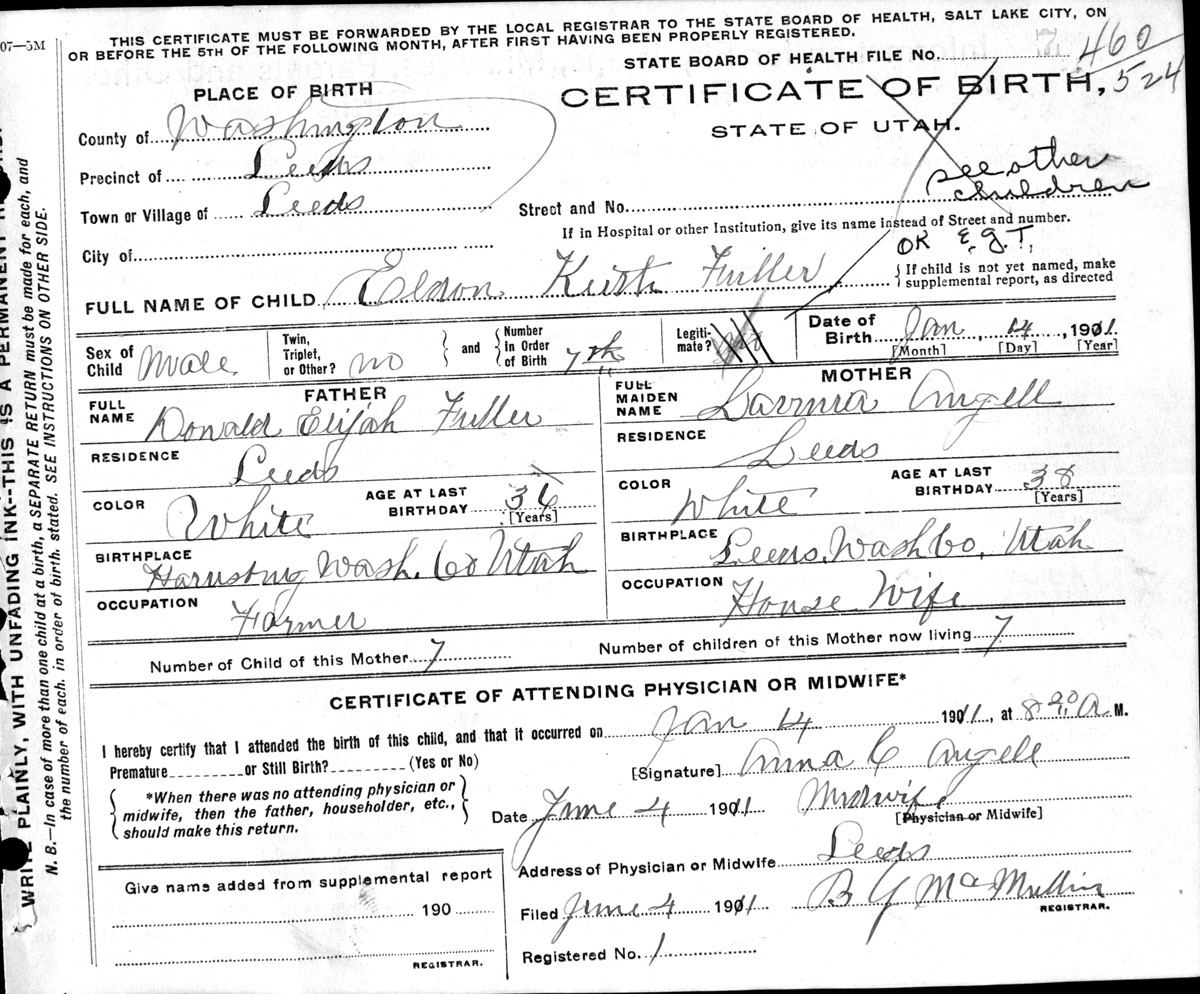 07—5M
THIS CERTIFICATE MUST BE FORWARDED BY THE LOCAL REGISTRAR TO THE STATE BOARD OF HEALTH, SALT LAKE CITY, ON
OR BEFORE THE 5TH OF THE FOLLOWING MONTH, AFTER FIRST HAVING BEEN PROPERLY REGISTERED.
STATE BOARD OF HEALTH FILE NO. 460
524
PLACE OF BIRTH
CERTIFICATE OF BIRTH,
STATE OF UTAH.
County of Washington
Precinct of Leeds
Town or Village of Leeds
City of
see other
children
Street and No.
If in Hospital or other Institution, give its name instead of Street and number.
OK E.G.T.
FULL NAME OF CHILD Eldon Keith Fuller
If child is not yet named, make
supplemental report, as directed
Sex of Child Male
Twin, Triplet, or Other? no
and
Number In Order of Birth 7th
Legitimate?
Date of Birth Jan 14, 1911
[Month] [Day] [Year]
FATHER
FULL NAME Donald Elijah Fuller
RESIDENCE Leeds
COLOR White
AGE AT LAST BIRTHDAY 36
[Years]
BIRTHPLACE Harrisburg Wash. Co Utah
OCCUPATION Farmer
MOTHER
FULL MAIDEN NAME Lavinia Angell
RESIDENCE Leeds
COLOR White
AGE AT LAST BIRTHDAY 38
[Years]
BIRTHPLACE Leeds, Wash Co, Utah
OCCUPATION House Wife
Number of Child of this Mother 7
Number of children of this Mother now living 7
CERTIFICATE OF ATTENDING PHYSICIAN OR MIDWIFE*
I hereby certify that I attended the birth of this child, and that it occurred on Jan 14 1911, at 8 a M.
Premature or Still Birth? (Yes or No)
[Signature] Anna C Angell
*When there was no attending physician or
midwife, then the father, householder, etc.,
should make this return.
Date June 4 1911 Midwife
[Physician or Midwife]
Address of Physician or Midwife Leeds
Give name added from supplemental report
190
REGISTRAR.
Filed June 4 1911 B Y McMullin
REGISTRAR.
Registered No. 1
WRITE PLAINLY, WITH UNFADING INK--THIS IS A PERMANENT
N. B.—In case of more than one child at a birth, a SEPARATE RETURN must be made for each, and
the number of each, in order of birth, stated. SEE INSTRUCTIONS ON OTHER SIDE.